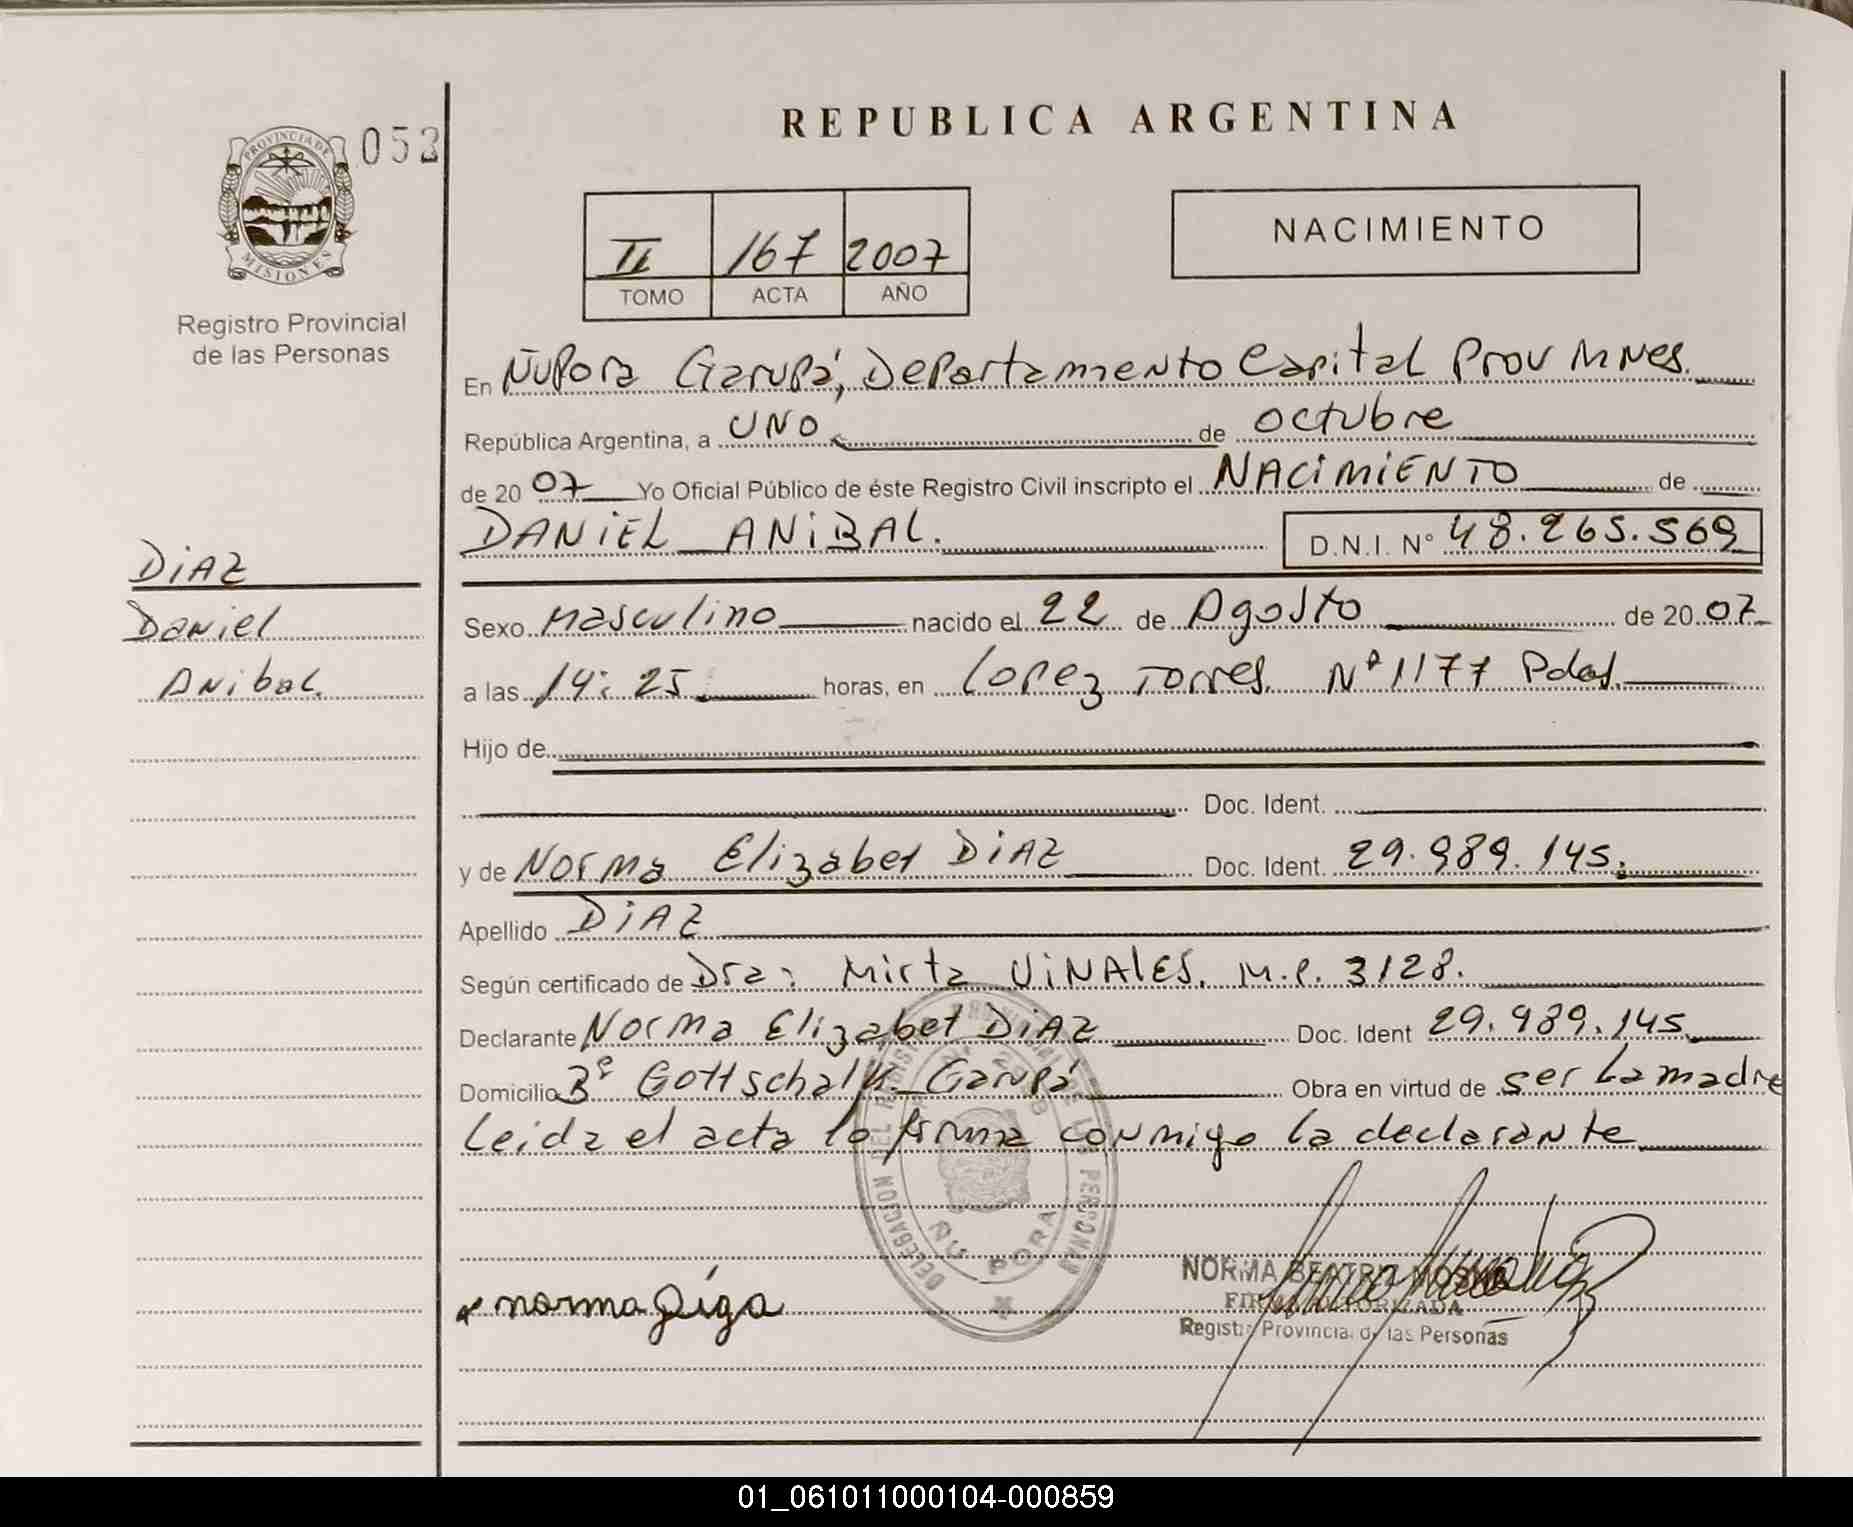 REPUBLICA ARGENTINA
PROVINCIA DE
MISIONES
052
Registro Provincial
de las Personas
II 167 2007
TOMO ACTA AÑO
NACIMIENTO
En Ñupora Garupá, Departamento Capital Prov Mnes.
República Argentina, a UNO de octubre
de 20 07 Yo Oficial Público de éste Registro Civil inscripto el NACIMIENTO de
DANIEL ANIBAL. D.N.I. N° 48.265.569
DIAZ
Daniel
Anibal.
Sexo Masculino nacido el 22 de Agosto de 20 07
a las 14:25 horas, en Lopez Torres N° 1177 Pdas.
Hijo de
Doc. Ident.
y de Norma Elizabet DIAZ Doc. Ident. 29.989.145.
Apellido DIAZ
Según certificado de Dra: Mirta VIÑALES. M.P. 3128.
Declarante Norma Elizabet DIAZ Doc. Ident 29.989.145
Domicilio B° Gottschalk Garupá Obra en virtud de ser La madre
Leida el acta lo firma conmigo la declarante
DELEGACION DEL REGISTRO PROVINCIAL DE LAS PERSONAS
ÑU PORA
norma
NORMA BEATRIZ
FIRMA AUTORIZADA
Registro Provincial de las Personas
01_061011000104-000859